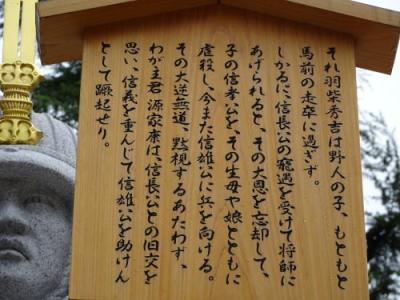 それ羽柴秀吉は野人の子、もともと
馬前の走卒に過ぎず。
しかるに、信長公の寵遇を受けて将師に
あげられると、その大恩を忘却して、
子の信孝公を、その生母や娘とともに
虐殺し、今また信雄公に兵を向ける。
その大逆無道、黙視するあたわず、
わが主君 源家康は、信長公との旧交を
思い、信義を重んじて信雄公を助けん
として蹶起せり。